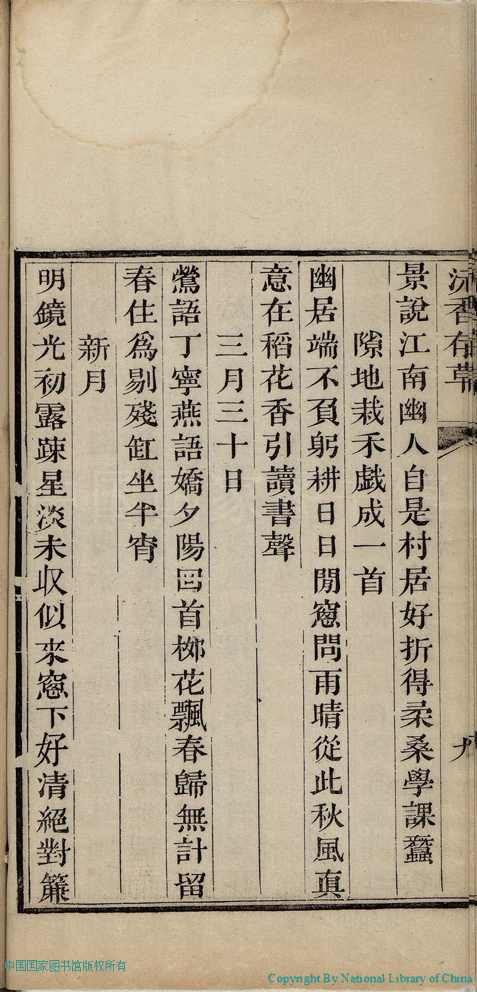 沅香存草
九
景說江南幽人自是村居好折得柔桑學課蠶
隙地栽禾戯成一首
幽居端不負躬耕日日閒窻問雨晴從此秋風眞
意在稻花香引讀書聲
三月三十日
鶯語丁寧燕語嬌夕陽回首栁花飄春歸無計留
春住爲剔殘缸坐半宵
新月
明鏡光初露踈星淡未収似來窻下好清絕對簾
中国国家图书馆版权所有
Copyright By National Library of China